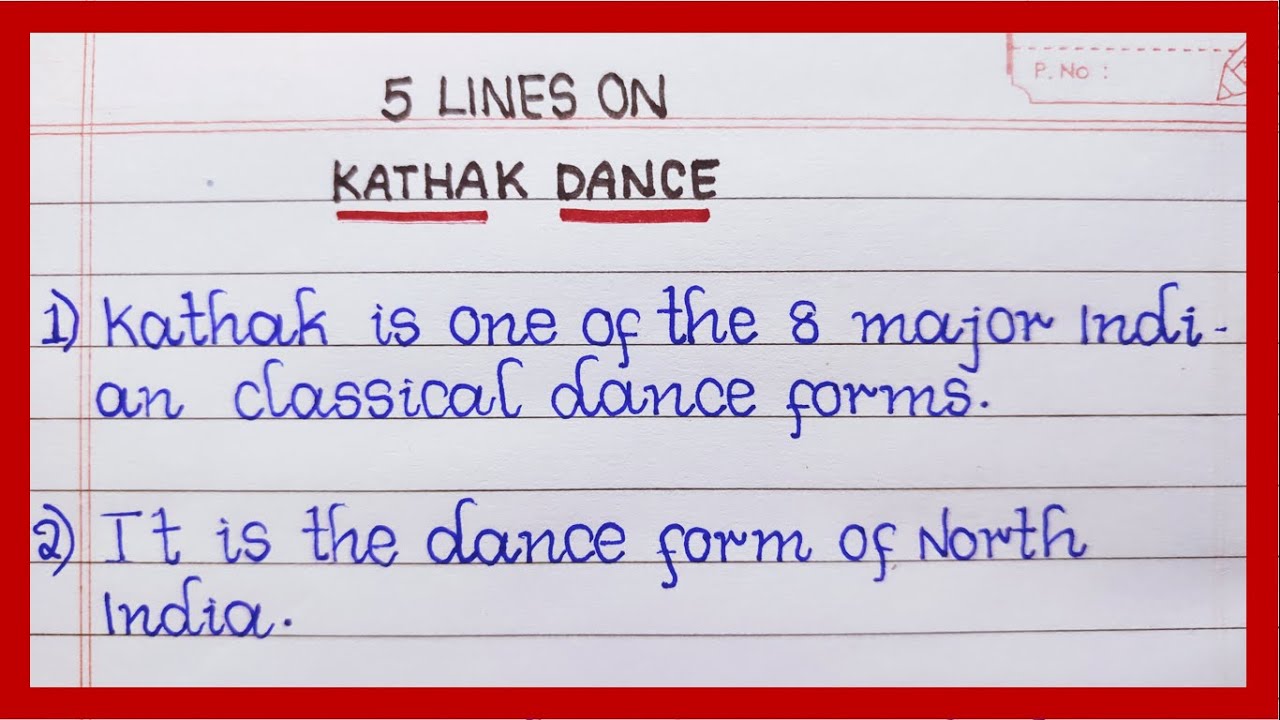 P. No :
5 LINES ON
KATHAK DANCE
1) Kathak is one of the 8 major Indi-
an classical dance forms.
2) It is the dance form of North
India.